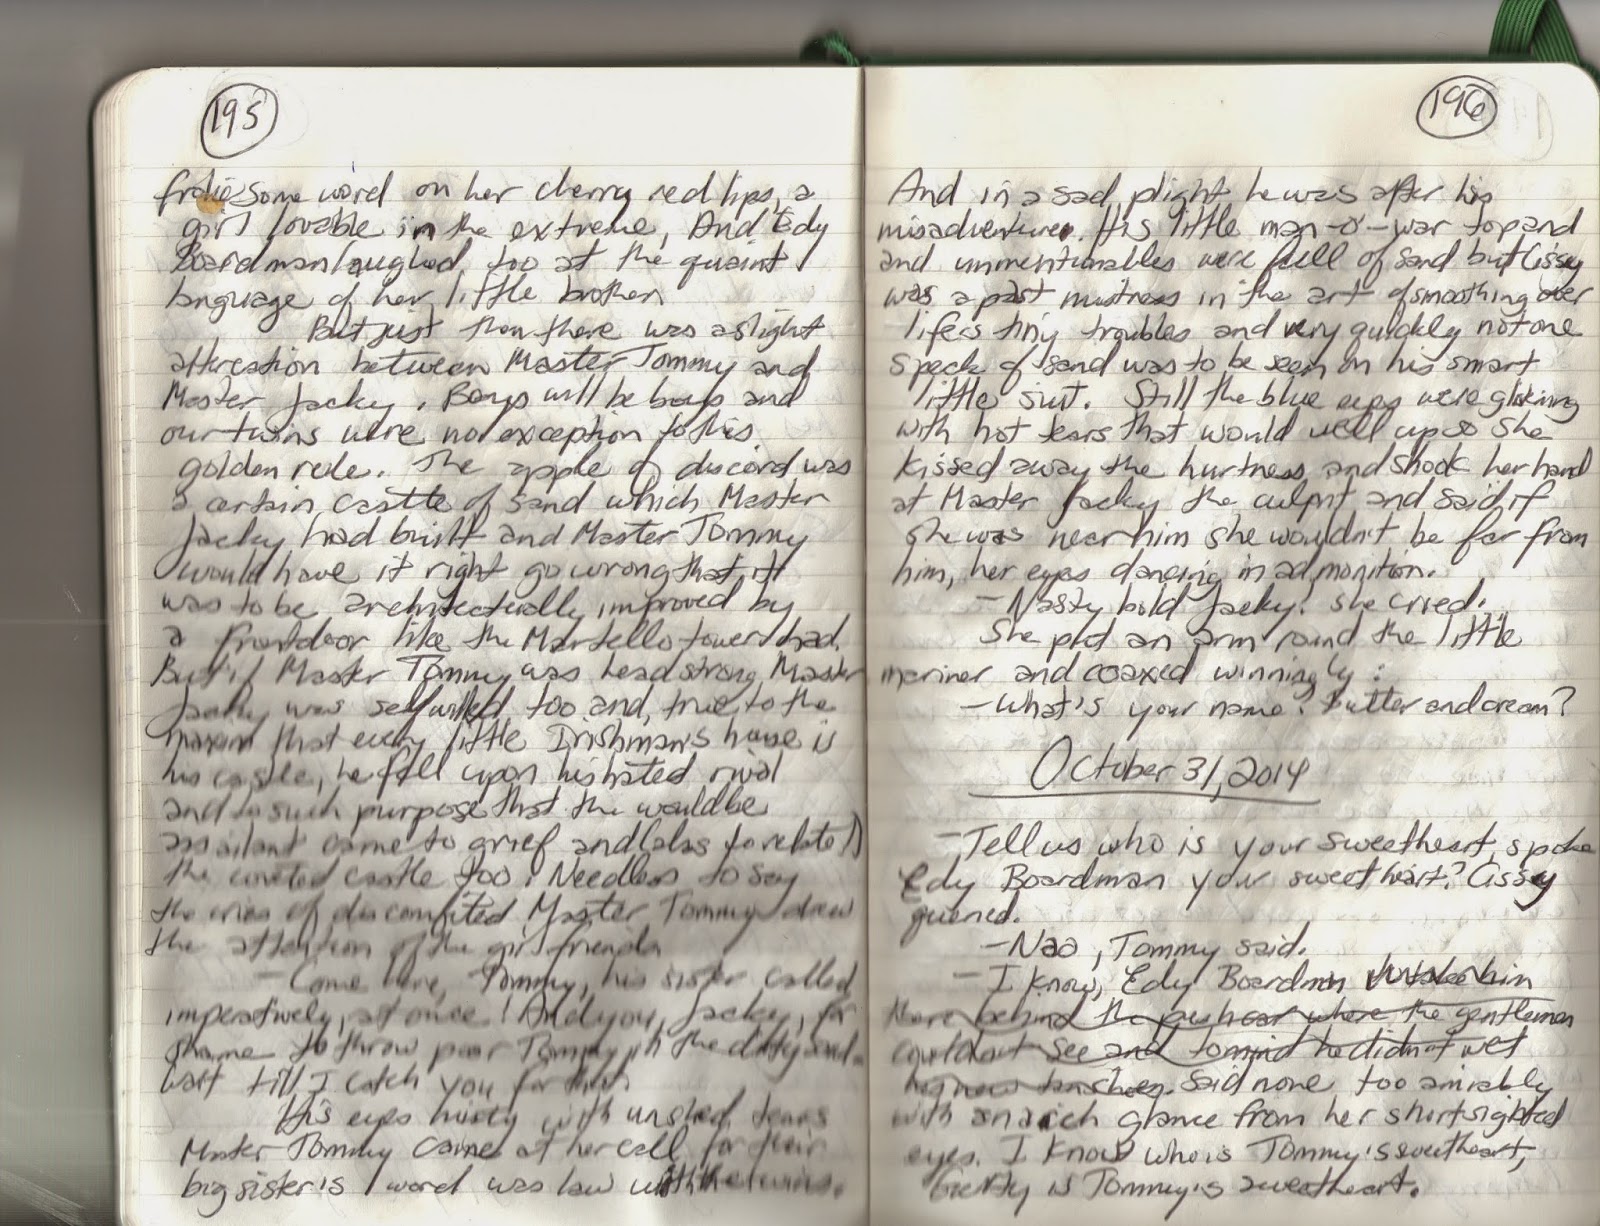 195
frolicsome word on her cherry red lips, a
girl lovable in the extreme, And Edy
Boardman laughed too at the quaint
language of her little brother.
But just then there was a slight
altercation between Master Tommy and
Master Jacky. Boys will be boys and
our twins were no exception to this
golden rule. The apple of discord was
a certain castle of sand which Master
Jacky had built and Master Tommy
would have it right go wrong that it
was to be architecturally improved by
a frontdoor like the Martello tower had.
But if Master Tommy was headstrong Master
Jacky was selfwilled too and, true to the
maxim that every little Irishman's house is
his castle, he fell upon his hated rival
and to such purpose that the wouldbe
assailant came to grief and (alas to relate!)
the coveted castle too. Needless to say
the cries of discomfited Master Tommy drew
the attention of the girl friends.
- Come here, Tommy, his sister called
imperatively, at once! And you, Jacky, for
shame to throw poor Tommy in the dirty sand.
Wait till I catch you for that.
His eyes misty with unshed tears
Master Tommy came at her call for their
big sister's word was law with the twins.
196
And in a sad plight he was after his
misadventure. His little man-o'-war top and
and unmentionables were full of sand but Cissy
was a past mistress in the art of smoothing over
life's tiny troubles and very quickly not one
speck of sand was to be seen on his smart
little suit. Still the blue eyes were glistening
with hot tears that would well up so she
kissed away the hurtness and shook her hand
at Master Jacky the culprit and said if
she was near him she wouldn't be far from
him, her eyes dancing in admonition.
- Nasty bold Jacky! she cried.
She put an arm round the little
mariner and coaxed winningly:
- What's your name? Butter and cream?
October 31, 2014
- Tell us who is your sweetheart, spoke
Edy Boardman your sweetheart? Cissy
queried.
- Nao, Tommy said.
- I know, Edy Boardman him
there behind the pushcar where the gentlemen
couldn't see and to mind he didn't wet
his new tan shoes. Said none too amiably
with an arch glance from her shortsighted
eyes. I know who is Tommy's sweetheart,
Gerty is Tommy's sweetheart.